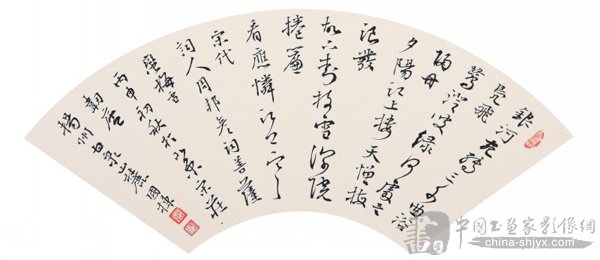 銀河宛轉三千曲浴
鳧飛
鷺澄波綠何處是
歸舟
夕陽江上樓天憎梅
浪發
故下封枝雪深院
捲簾
看應憐江上寒
宋代
詞人周邦彥詞菩薩
蠻梅雪
丙申初秋於北京宋莊
揚州白泉 國
中国书画家影像网
www.china-shjyx.com